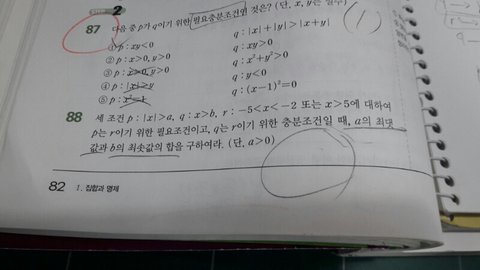 2
87 다음 중 p가 q이기 위한 필요충분조건인 것은? (단, x, y는 실수)
① p : xy<0 q : |x|+|y|>|x+y|
② p : x>0, y>0 q : xy>0
③ p : x>0, y>0 q : x²+y²>0
④ p : |x|>y q : y<0
⑤ p : x²=1 q : (x-1)²=0
88 세 조건 p : |x|>a, q : x>b, r : -5<x<-2 또는 x>5에 대하여
p는 r이기 위한 필요조건이고, q는 r이기 위한 충분조건일 때, a의 최댓
값과 b의 최솟값의 합을 구하여라. (단, a>0)
82 1. 집합과 명제
(1)